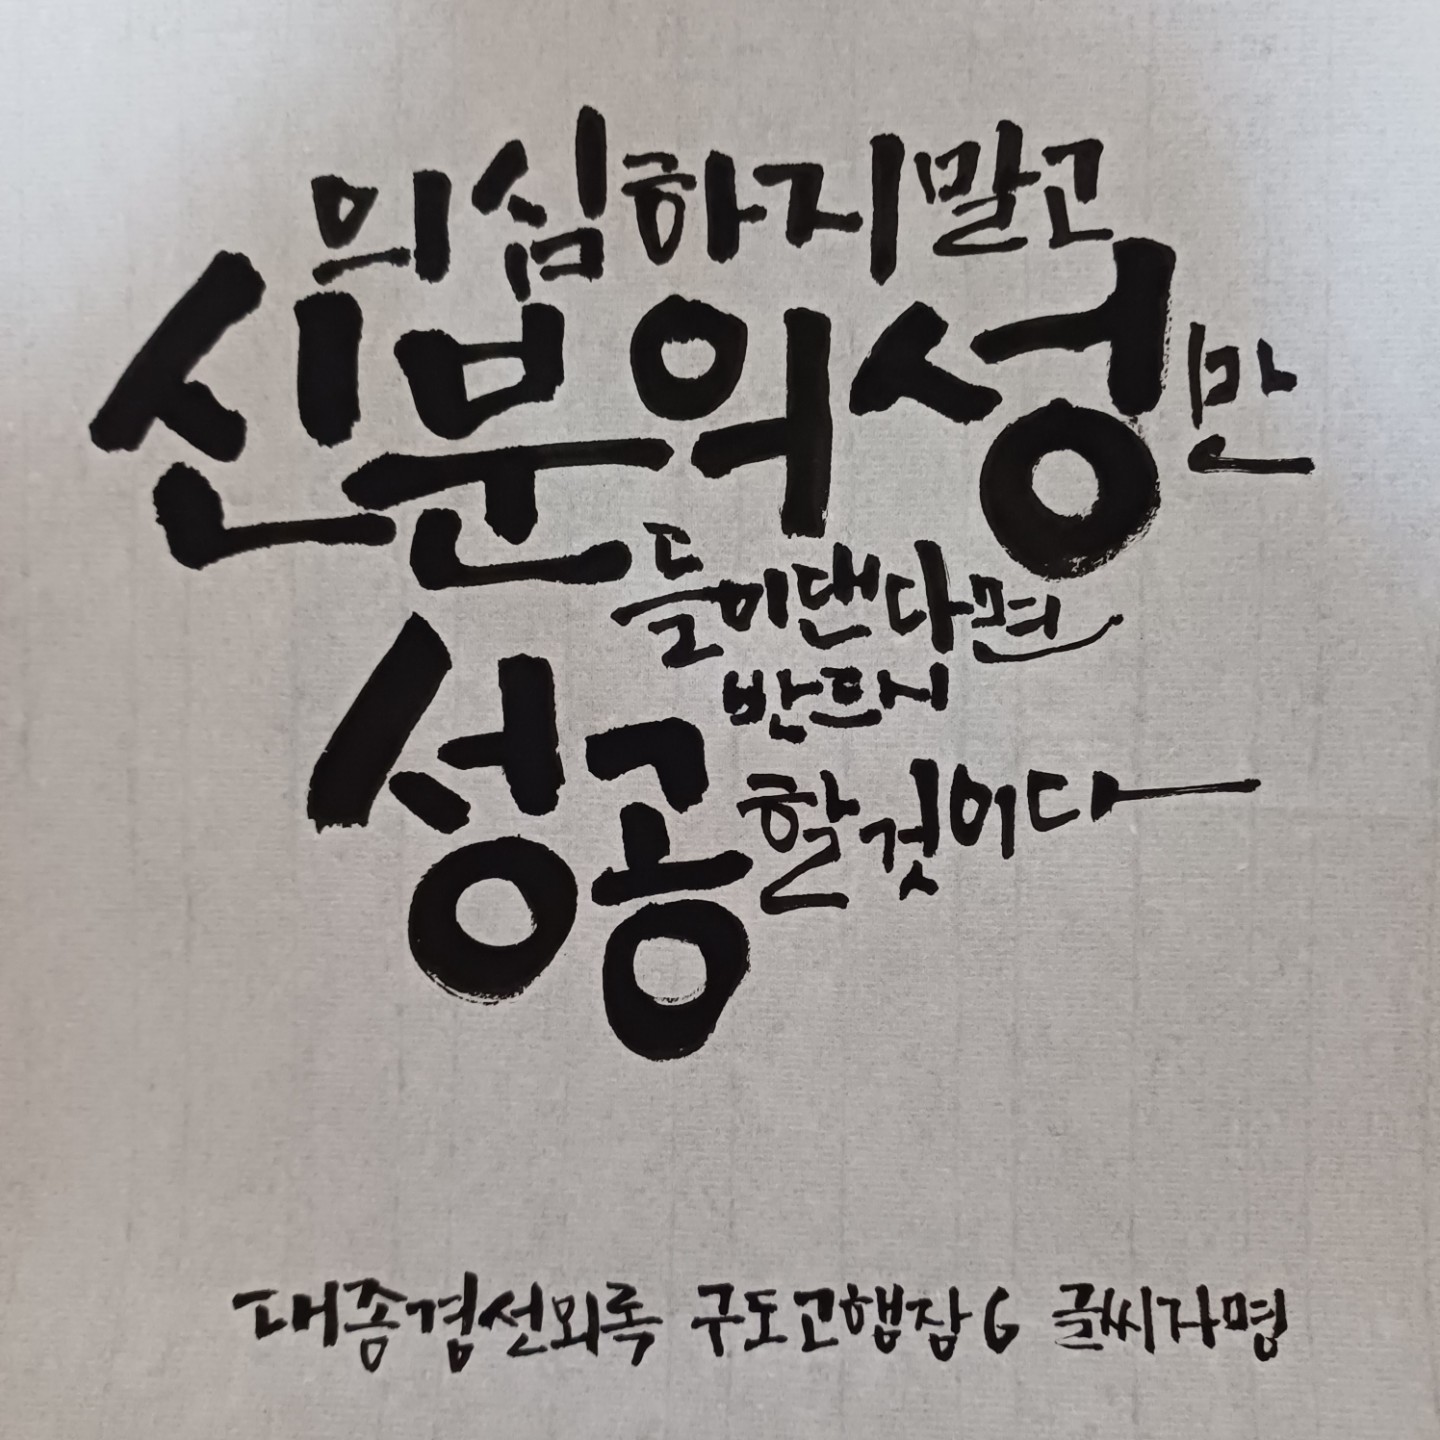 의심하지말고
신분의성만
들이댄다면
반드시
성공할것이다
대종경선외록 구도고행장 6 글씨자명